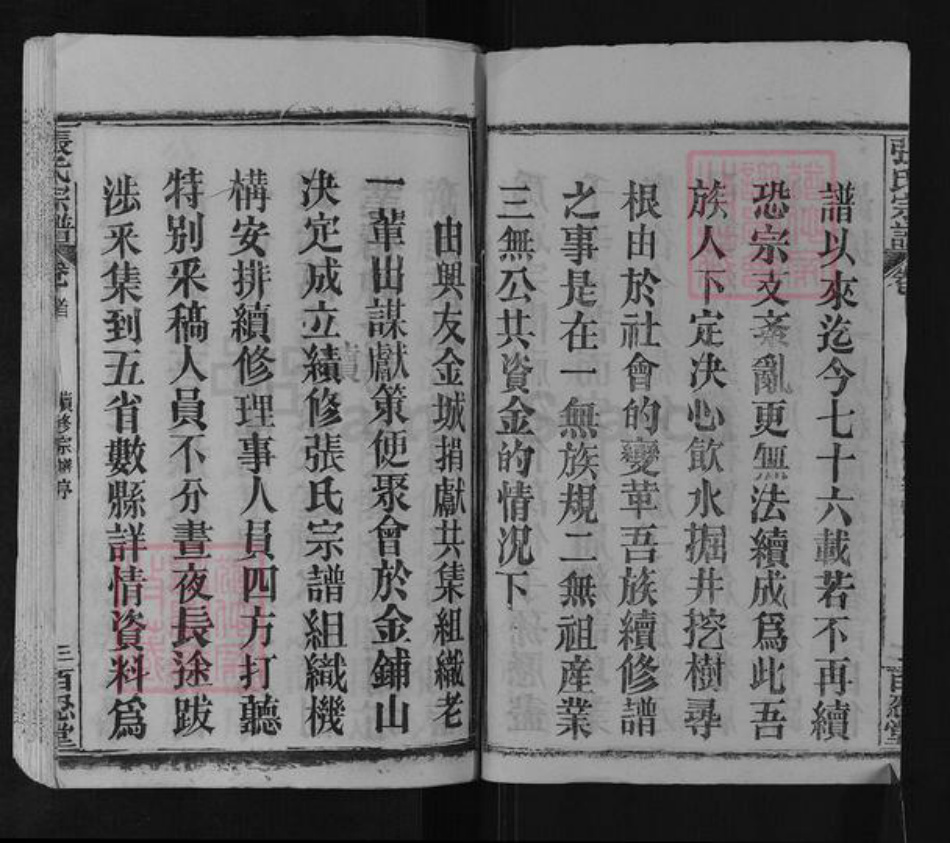 張氏宗譜
百忍堂
譜以來迄今七十六載若不再續
恐宗支紊亂更無法續成爲此吾
族人下定決心飲水掘井挖樹尋
根由於社會的變革吾族續修譜
之事是在一無族規二無祖産業
三無公共資金的情况下
由興友金城捐獻共集組織老
一輩出謀獻策便聚會於金鋪山
决定成立績修張氏宗譜組織機
構安排續修理事人員四方打聽
特別采稿人員不分晝夜長途跋
涉采集到五省數縣詳情資料爲
張氏宗譜
卷首
續修宗譜序
三
百忍堂